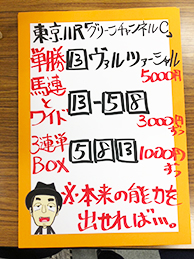 東京11R グリーンチャンネルC
単勝 13 ヴァルツァーシャル
5000円
馬連とワイド 13-5 8
3000円ずつ
3連単BOX 5 8 13 1000円ずつ
※本来の能力を出せれば…。